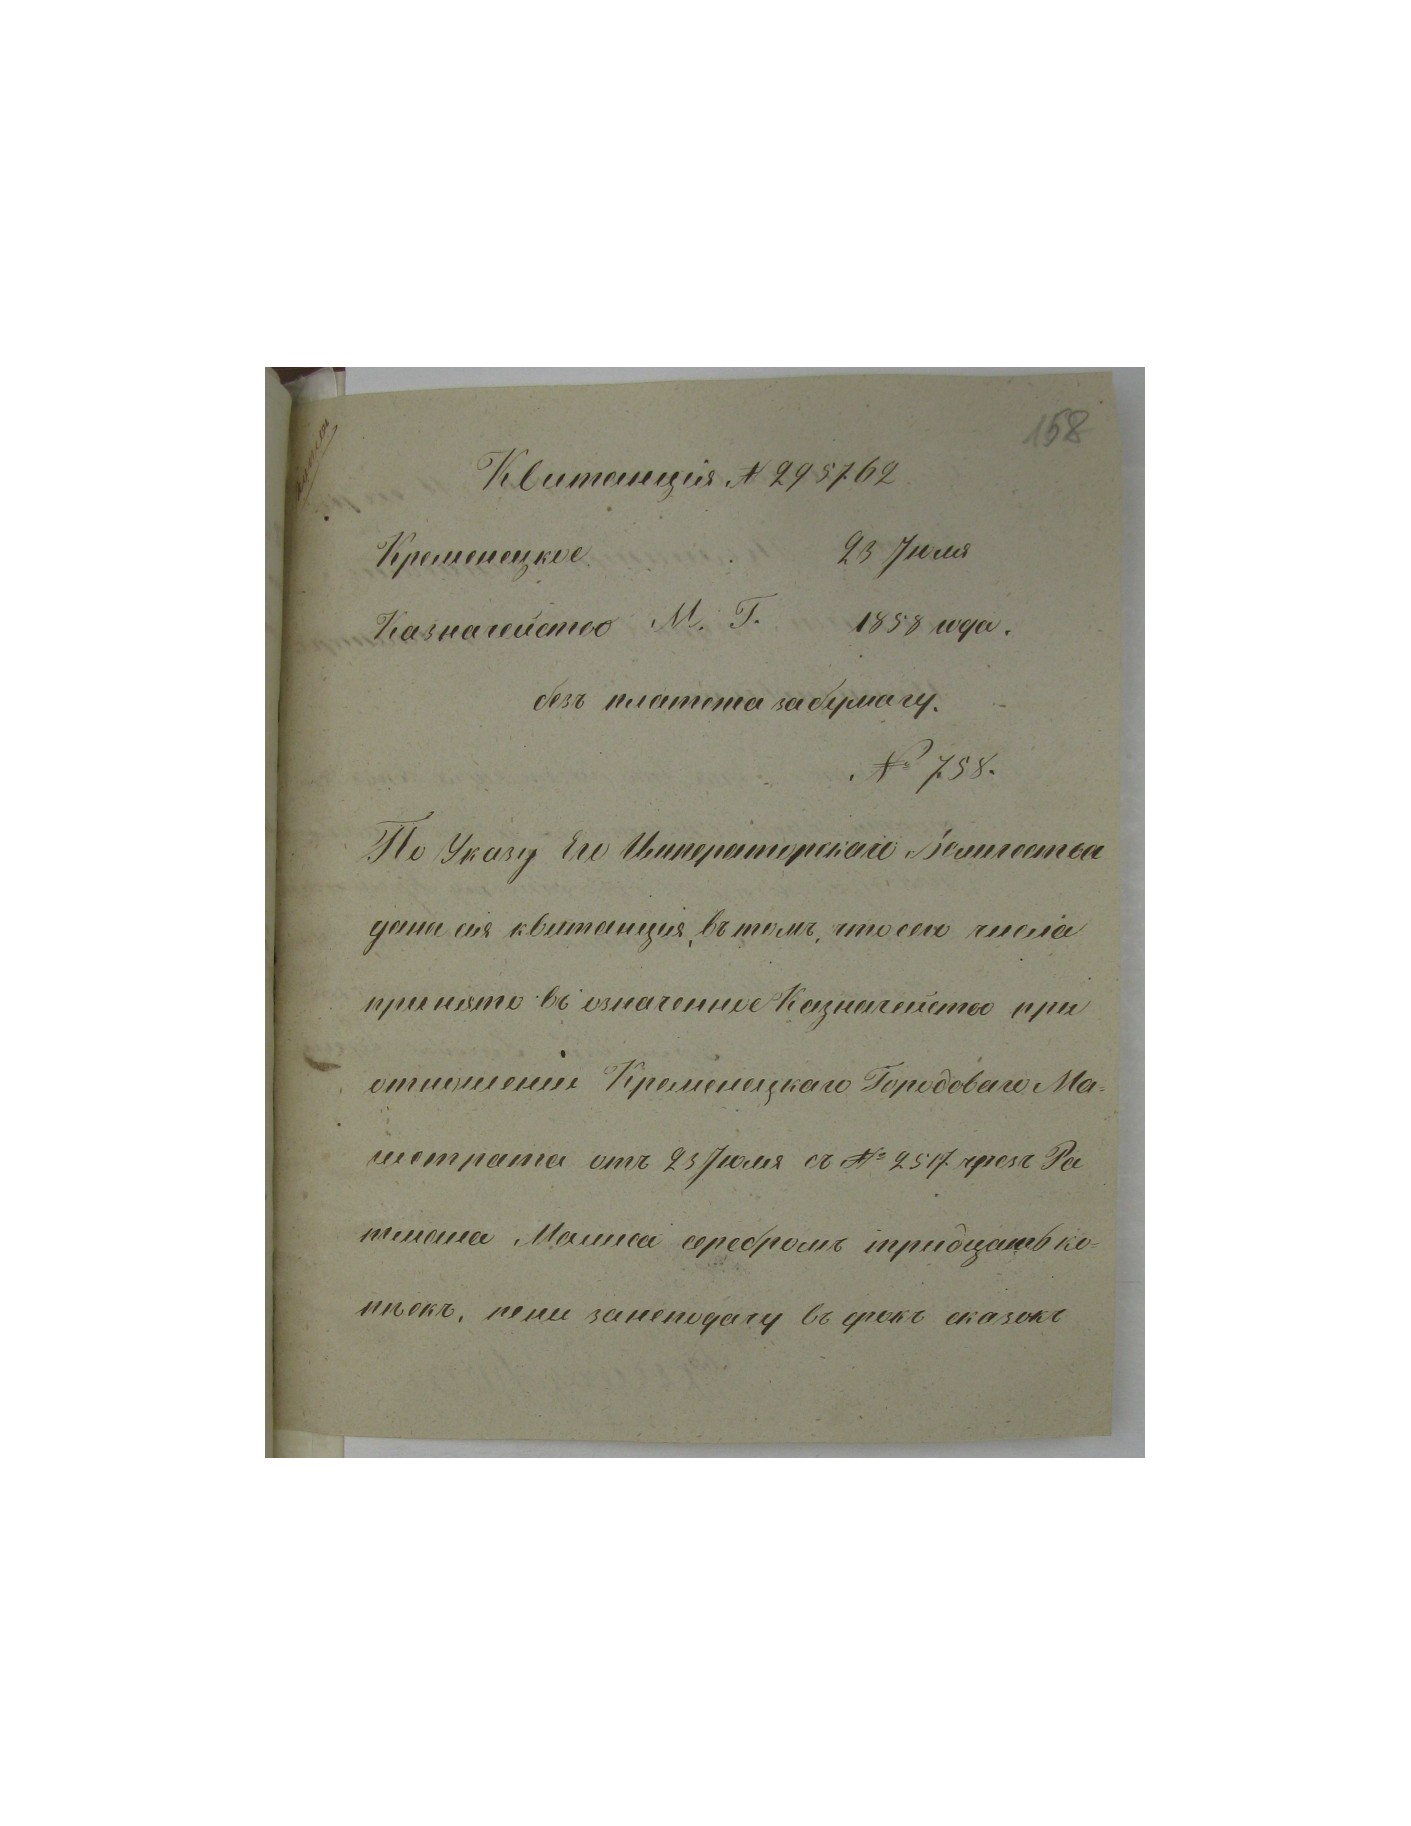 158
Квитанція № 295762
Кременецкое 23 Іюля
Казначейство М. Г. 1858 года.
безъ платежа за бумагу.
№ 758.
По Указу Его Императорскаго Величества
дана сія квитанція, въ томъ, что сего числа
принято въ означенное Казначейство при
отношеніи Кременецкаго Городоваго Ма-
гистрата отъ 23 Іюля съ № 2517 чрезъ Ра
тмана серебромъ тридцать ко-
пѣекъ, пени за неподачу въ срокъ сказокъ